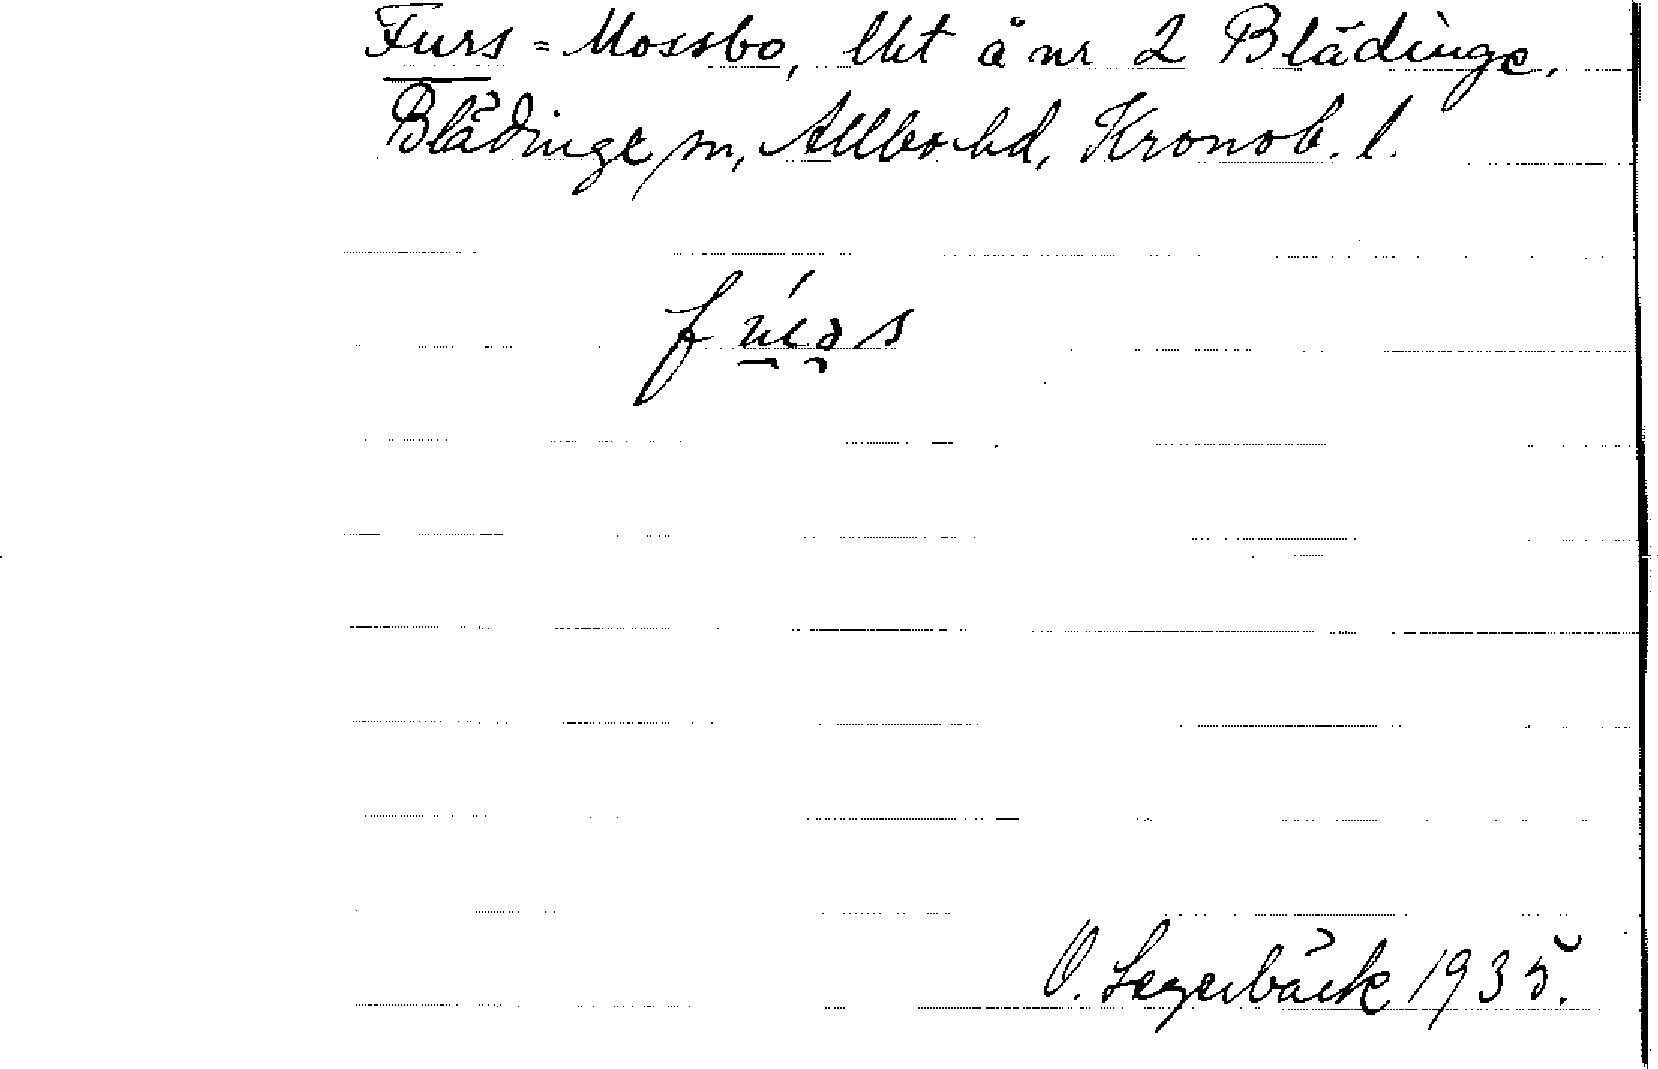 Furs-Mossbo, lht å nr 2 Blädinge,
Blädinge sn, Allbo hd, Kronob. l.
O. Segerbäck 1935.